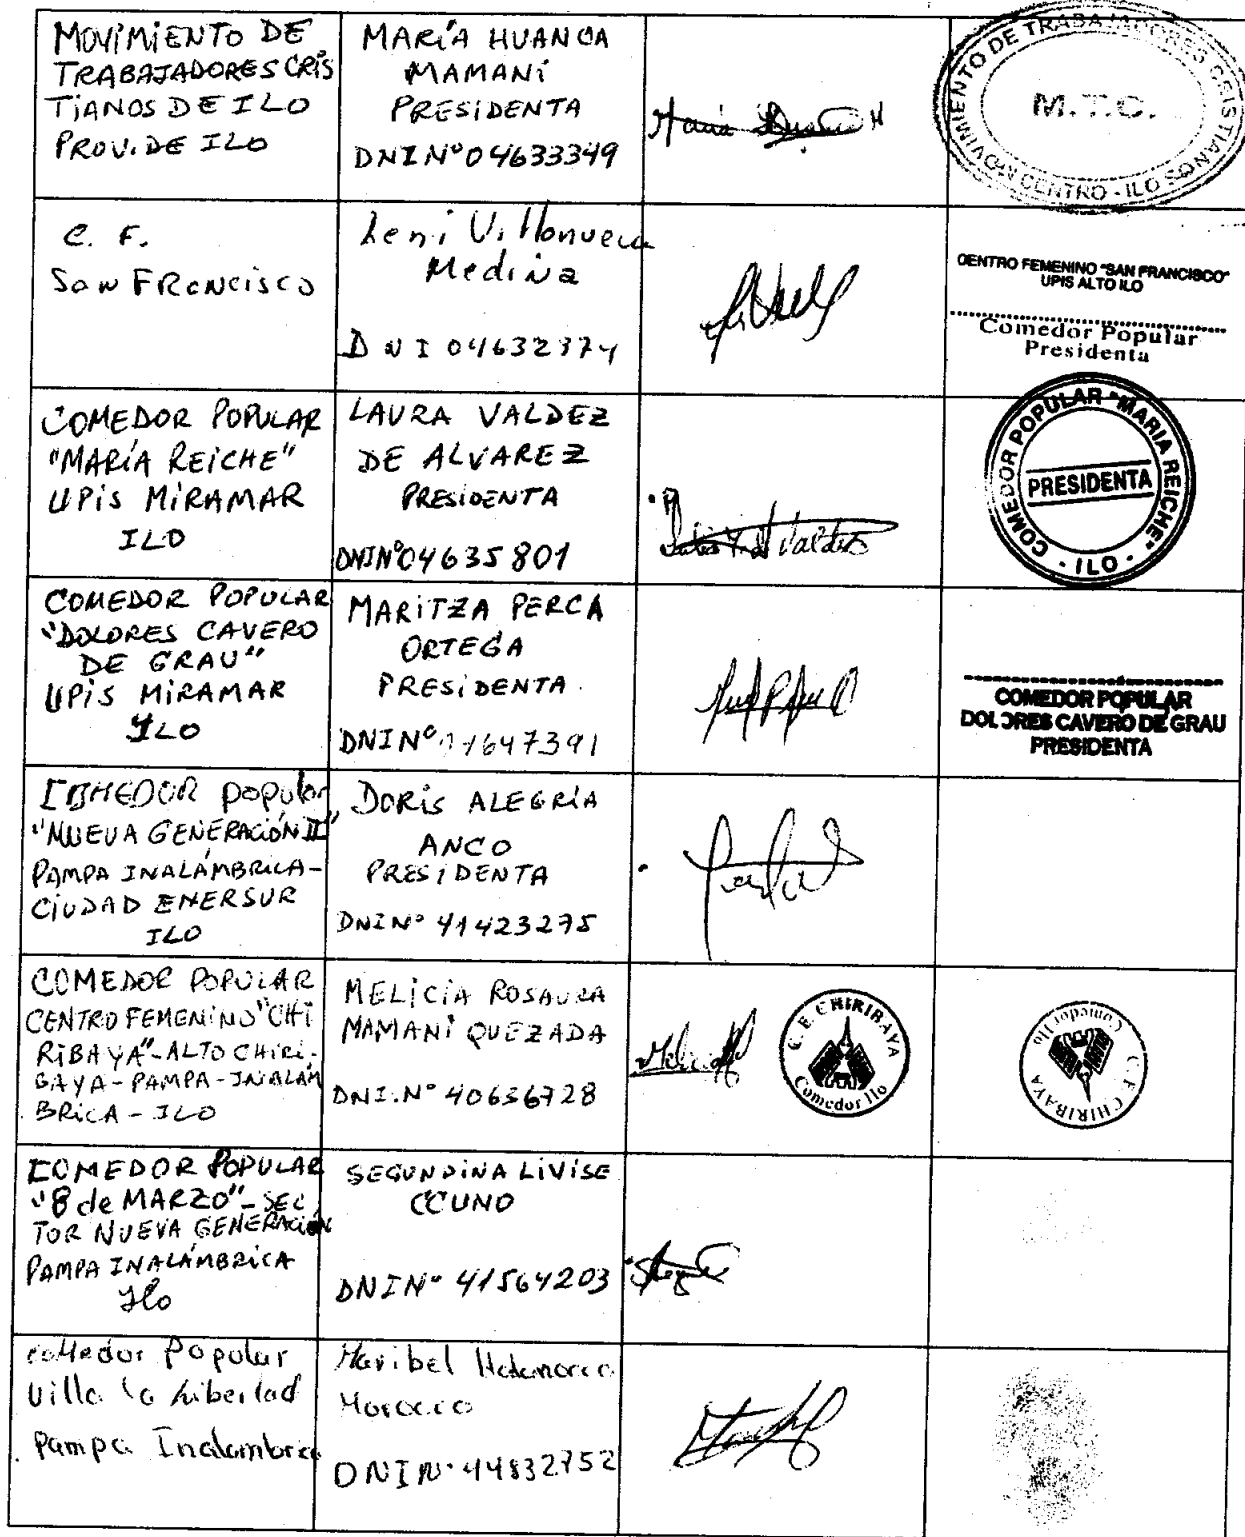 MOVIMIENTO DE
TRABAJADORES CRIS
TIANOS DE ILO
PROV. DE ILO
MARÍA HUANCA
MAMANÍ
PRESIDENTA
DNI Nº 04633349
MOVIMIENTO DE TRABAJADORES CRISTIANOS
M.T.C.
CENTRO - ILO
C. F.
San FRANCISCO
Leni Villanueva
Medina
DNI 04632374
CENTRO FEMENINO "SAN FRANCISCO"
UPIS ALTO ILO
Comedor Popular
Presidenta
COMEDOR POPULAR
"MARÍA REICHE"
UPIS MIRAMAR
ILO
LAURA VALDEZ
DE ALVAREZ
PRESIDENTA
DNI Nº 04635801
Valdez
COMEDOR POPULAR "MARIA REICHE"
PRESIDENTA
- ILO -
COMEDOR POPULAR
"DOLORES CAVERO
DE GRAU"
UPIS MIRAMAR
ILO
MARITZA PERCA
ORTEGA
PRESIDENTA
DNI Nº 647391
COMEDOR POPULAR
DOLORES CAVERO DE GRAU
PRESIDENTA
COMEDOR popular
"NUEVA GENERACIÓN II"
PAMPA INALÁMBRICA-
CIUDAD ENERSUR
ILO
DORIS ALEGRÍA
ANCO
PRESIDENTA
DNI Nº 41423275
COMEDOR POPULAR
CENTRO FEMENINO "CHI
RIBAYA"-ALTO CHIRI-
BAYA-PAMPA-INALÁM
BRICA - ILO
MELICIA ROSAURA
MAMANI QUEZADA
DNI. Nº 40636728
C.F. CHIRIBAYA
Comedor Ilo
C.F. CHIRIBAYA
Comedor Ilo
COMEDOR POPULAR
"8 de MARZO"- SEC
TOR NUEVA GENERACIÓN
PAMPA INALÁMBRICA
Ilo
SEGUNDINA LIVISE
CCUNO
DNI Nº 41564203
comedor Popular
Villa la Libertad
Pampa Inalambrica
Maribel
DNI Nº 44832752